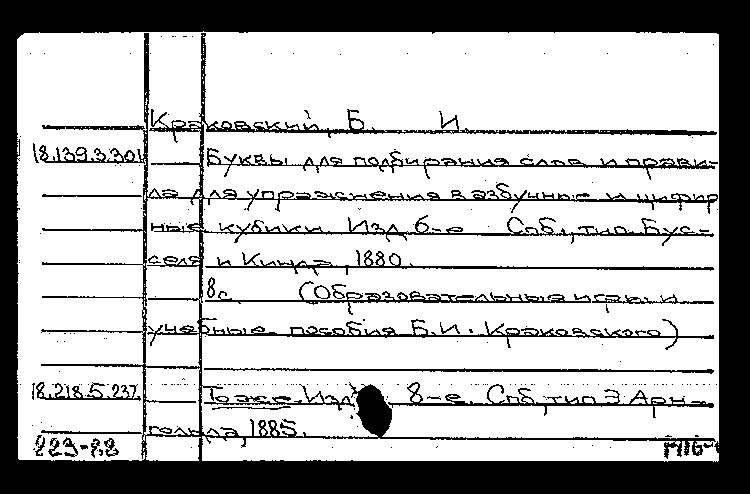 Краковский, Б. И.
18.139.3.301 Буквы для подбирания слов и прави-
ла для упражнения в азбучные и цифир
ные кубики. Изд. 6-е Спб., тип. Бус-
селя и Кинда, 1880.
8с. (Образовательные игры и
учебные пособия Б.И. Краковского)
18.218.5.237. То же. Изд. 8-е. Спб, тип Э Арн-
гольда, 1885.
223-82